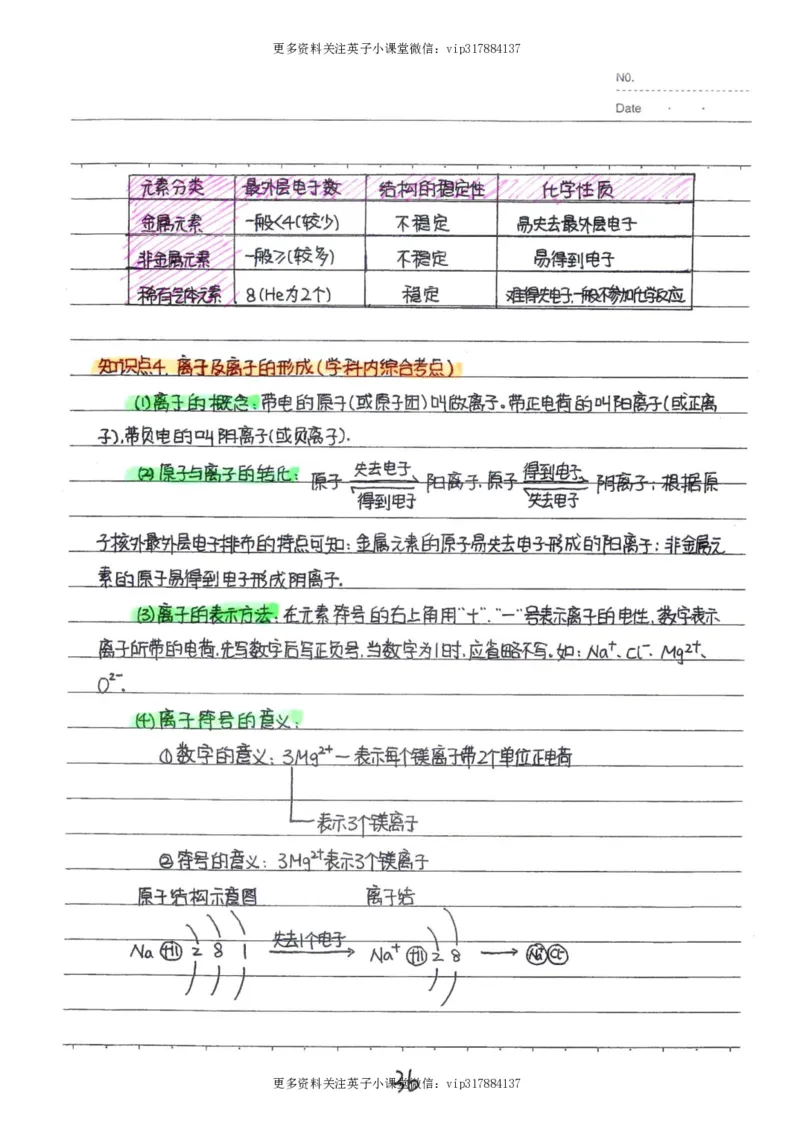 更多资料关注英子小课堂微信：vip317884137
NO.
Date
元素分类 最外层电子数 结构的稳定性 化学性质
金属元素 一般<4(较少) 不稳定 易失去最外层电子
非金属元素 一般≥(较多) 不稳定 易得到电子
稀有气体元素 8(He为2个) 稳定 难得失电子,一般不参加化学反应
知识点4. 离子及离子的形成(学科内综合考点)
(1)离子的概念:带电的原子(或原子团)叫做离子。带正电荷的叫阳离子(或正离
子),带负电的叫阴离子(或负离子).
(2)原子与离子的转化: 原子 失去电子 得到电子 阳离子, 原子 得到电子 失去电子 阴离子; 根据原
子核外最外层电子排布的特点可知: 金属元素的原子易失去电子形成的阳离子; 非金属元
素的原子易得到电子形成阴离子.
(3)离子的表示方法:在元素符号的右上角用"+"."一"号表示离子的电性,数字表示
离子所带的电荷.先写数字后写正负号,当数字为1时,应省略不写。如: Na⁺、Cl⁻. Mg²⁺、
O²⁻.
(4)离子符号的意义:
①数字的意义: 3Mg²⁺一表示每个镁离子带2个单位正电荷
表示3个镁离子
②符号的意义: 3Mg²⁺表示3个镁离子
原子结构示意图 离子结
Na +11 2 8 1 失去1个电子 Na⁺ +11 2 8 Na⁺ Cl⁻
36
更多资料关注英子小课堂微信：vip317884137